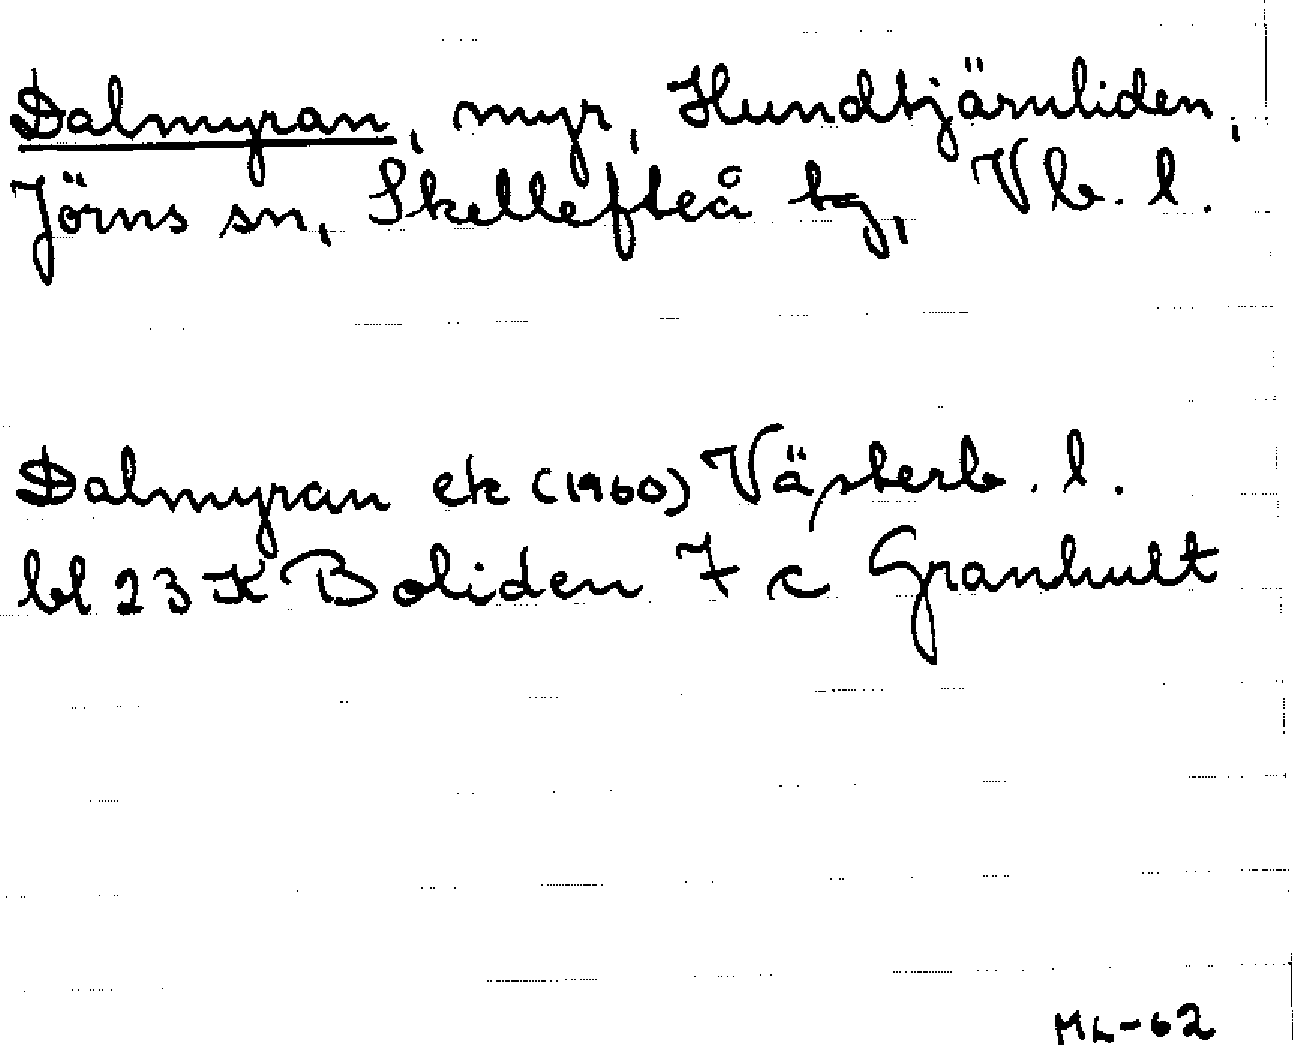 Dalmyran, myr, Hundtjärnliden,
Jörns sn, Skellefteå tg, Vb. l.
Dalmyran ek (1960) Västerb. l.
bl 23 K Boliden 7 c Granhult
ML-62